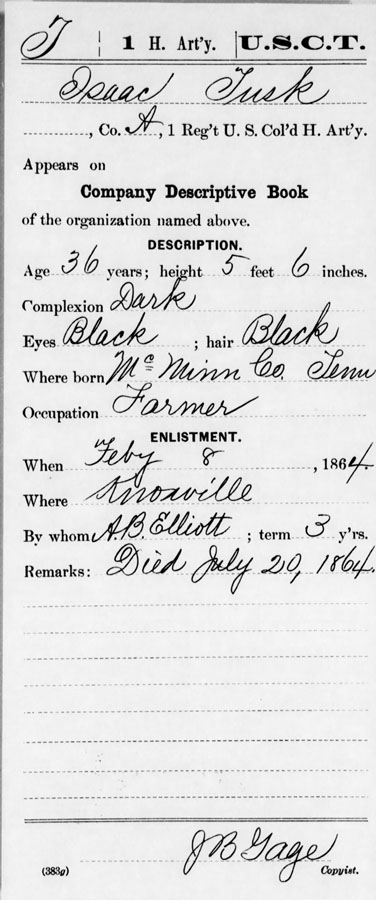 T | 1 H. Art'y. | U.S.C.T.
Isaac Tusk
, Co. A, 1 Reg't U. S. Col'd H. Art'y.
Appears on
Company Descriptive Book
of the organization named above.
DESCRIPTION.
Age 36 years; height 5 feet 6 inches.
Complexion Dark
Eyes Black ; hair Black
Where born Mc Minn Co. Tenn
Occupation Farmer
ENLISTMENT.
When Feby 8 , 1864.
Where Knoxville
By whom A.B. Elliott ; term 3 y'rs.
Remarks: Died July 20, 1864.
J B Gage
(383g) Copyist.